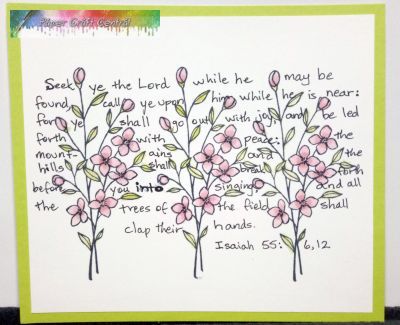 Paper Craft Central
Seek ye the Lord while he may be
found, call ye upon him while he is near:
For ye shall go out with joy, and be led
forth with peace: the
mount- ains and the
hills shall break forth
before you into singing and all
the trees of the field shall
clap their hands.
Isaiah 55: 6,12